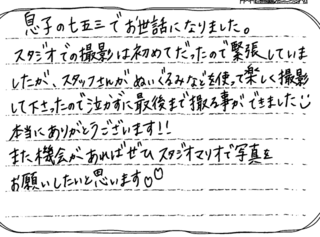 息子の七五三でお世話になりました。
スタジオでの撮影は初めてだったので緊張していま
したが、スタッフさんがぬいぐるみなどを使って楽しく撮影
して下さったので泣かずに最後まで撮る事ができました
本当にありがとうございます!!
また機会があればぜひスタジオマリオで写真を
お願いしたいと思います